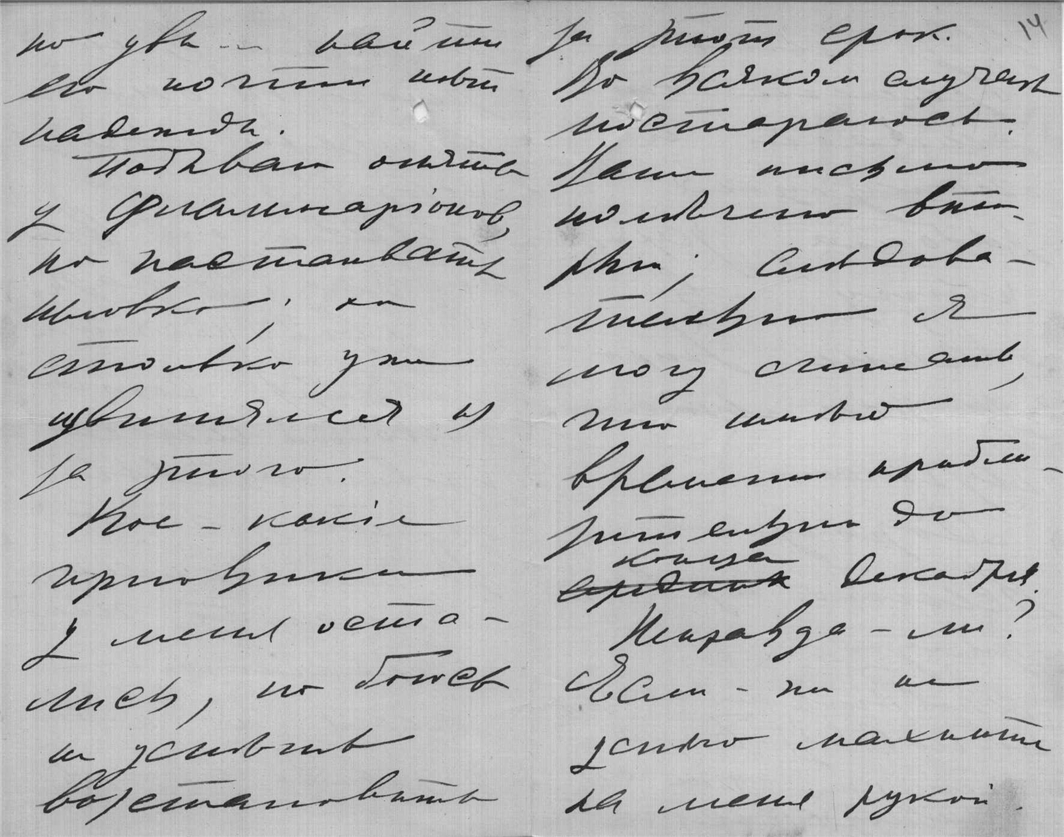 но увы... найти
его почти нѣт
надежды.
Побываю опять
у Фламмарiонов,
но настаивать
неловко; я
столько уже
извинялся из
за этого.
Кое-какiе
черновики
у меня оста-
лись, но боюсь
не успѣть
возстановить
14
за этот срок.
Во всяком случаѣ
постараюсь.
Ваше письмо
помѣчено
; слѣдова-
тельно я
могу считать,
что имѣю
времени прибли-
зительно до
конца
середины декабря.
Неправда-ли?
Если-же не
успѣю махните
на меня рукой.